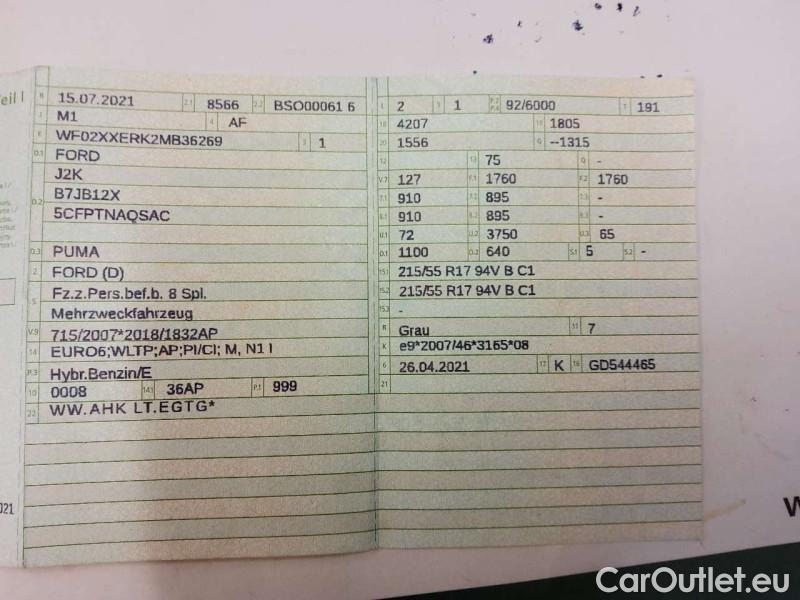 eil I
B 15.07.2021 2.1 8566 2.2 BSO00061 6
J M1 4 AF
E WF02XXERK2MB36269 3 1
D.1 FORD
J2K
D.2 B7JB12X
5CFPTNAQSAC
D.3 PUMA
2 FORD (D)
5 Fz.z.Pers.bef.b. 8 Spl.
Mehrzweckfahrzeug
V.9 715/2007*2018/1832AP
14 EURO6;WLTP;AP;PI/CI; M, N1 I
P.3 Hybr.Benzin/E
10 0008 14.1 36AP P.1 999
22 WW.AHK LT.EGTG*
L 2 9 1 P.2 P.4 92/6000 T 191
18 4207 19 1805
20 1556 G --1315
12 13 75 Q -
V.7 127 F.1 1760 F.2 1760
7.1 910 7.2 895 7.3 -
8.1 910 8.2 895 8.3 -
U.1 72 U.2 3750 U.3 65
O.1 1100 O.2 640 S.1 5 S.2 -
15.1 215/55 R17 94V B C1
15.2 215/55 R17 94V B C1
15.3 -
R Grau 11 7
K e9*2007/46*3165*08
6 26.04.2021 17 K 16 GD544465
21
021
W
CarOutlet.eu